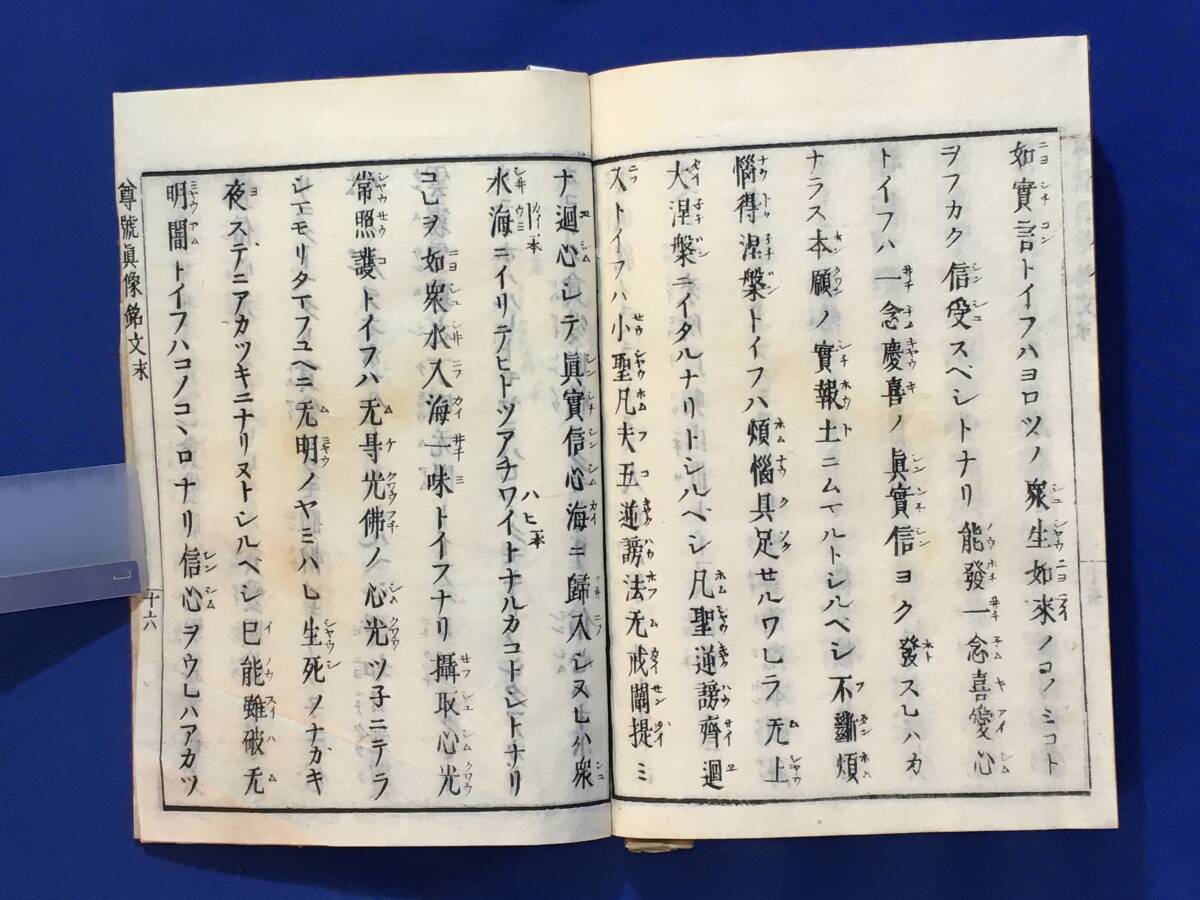 如實言トイフハヨロツノ衆生如來ノコノミコト
ヲフカク信受スベシトナリ能發一念喜愛心
トイフハ一念慶喜ノ眞實信ヨク發スレハカ
ナラス本願ノ實報土ニムマルトシルベシ不斷煩
惱得涅槃トイフハ煩惱具足セルワレラ无上
大涅槃ニイタルナリトシルベシ凡聖逆謗齊迴
入トイフハ小聖凡夫五逆謗法无戒闡提ミ
ナ迴心シテ眞實信心海ニ歸入シヌレハ衆
水海ニイリテヒトツアチワイトナルカコトシトナリ
コレヲ如衆水入海一味トイフナリ攝取心光
常照護トイフハ无㝵光佛ノ心光ツ子ニテラ
シマモリタマフユヘニ无明ノヤミハレ生死ノナガキ
夜ステニアカツキニナリヌトシルベシ已能雖破无
明闇トイフハコノコヽロナリ信心ヲウレハアカツ
尊號眞像銘文末
十六